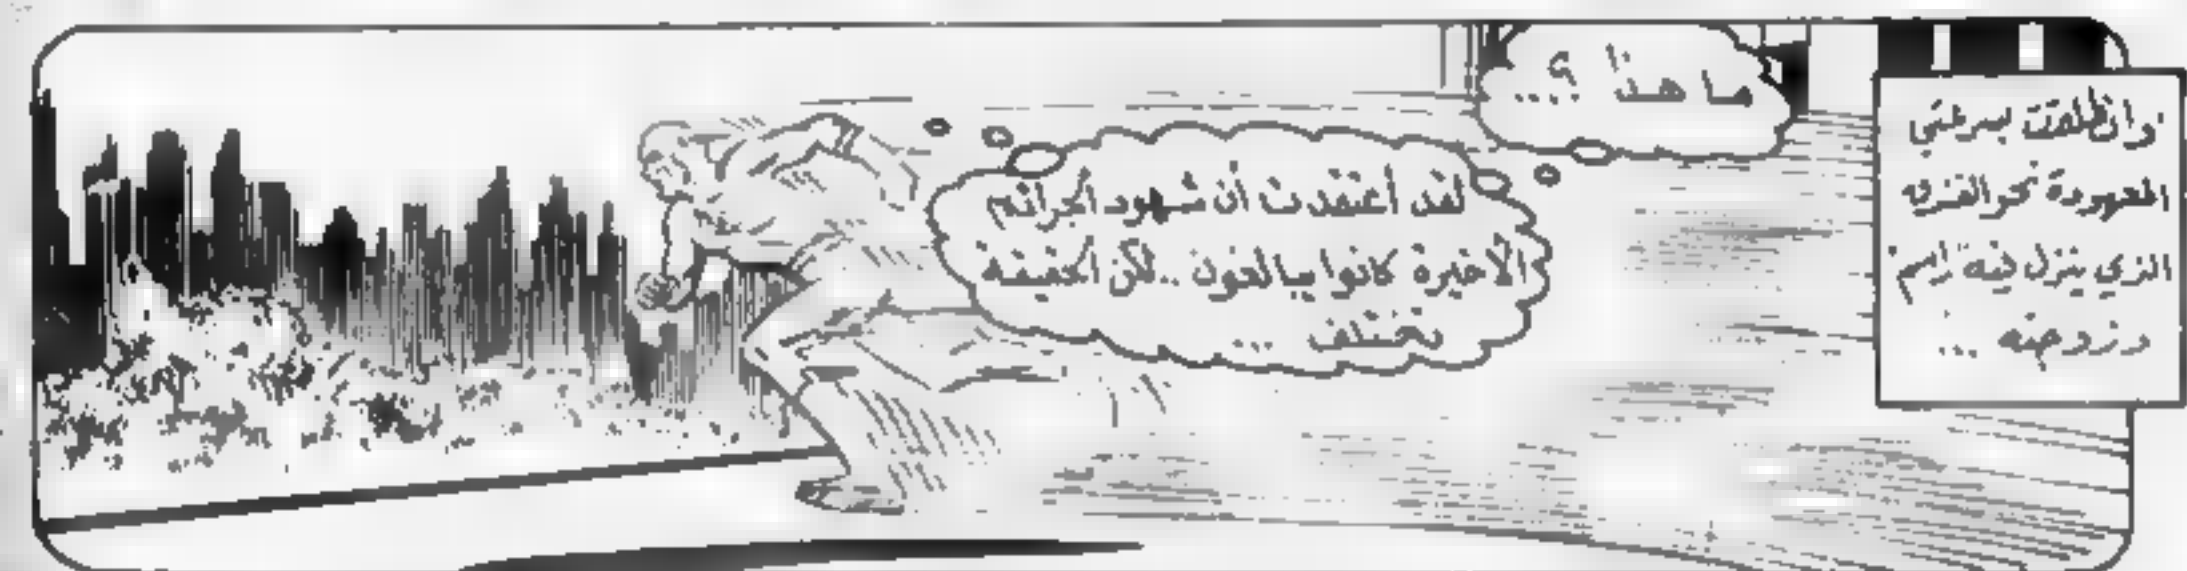 وانطلقت بسرعتي
المعهودة نحو الفندق
الذي ينزل فيه راسم
وزوجته ...
ما هذا ؟...
لقد أعتقدت أن شهود الجرائم
الأخيرة كانوا يبالغون .. لكن الحقيقة
تختلف ...